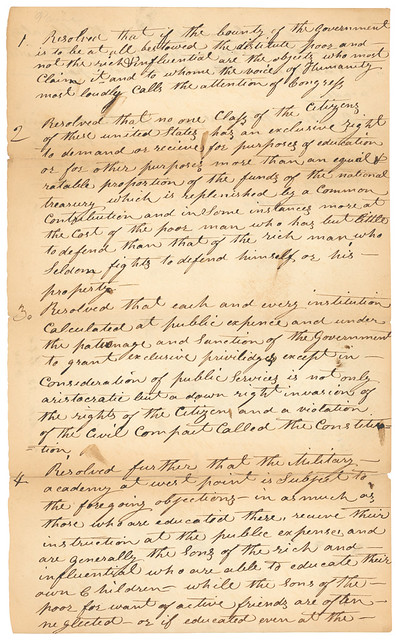 1 Resolved that if the bounty of the Government
is to be at all bestowed the distitute poor and
not the rich & influential are the objects who most
Claim it and to whome the voice of Humanity
most loudly Calls the attention of Congress
2 Resolved that no one Class of the Citizens
of these united States has an exclusive right
to demand or recieve for purposes of education
or for other purposes more than an equal &
ratable proportion of the funds of the national
treasury which is replenished by a Common
Contribution and in Some instances more at
the Cost of the poor man who has but little
to defend than that of the rich man who
Seldom fights to defend himself or his
property—
3. Resolved that each and every institution
Calculated at public expence and under
the patronage and Sanction of the Government
to grant exclusive priviledges except in—
Consideration of public Services is not only
aristocratic but a down right invasion of
the rights of the Citizen and a violation
of the Civil Compact Called the Constitu=
=tion
4 Resolved further that the Military—
academy at west point is Subject to
the foregoing objections— in as much as
those who are educated there, recieve their
instruction at the public expense and
are generally the Sons of the rich and
influential who are able to educate their
own Children— while the Sons of the—
poor for want of active friends are often—
neglected— or if educated even at the—